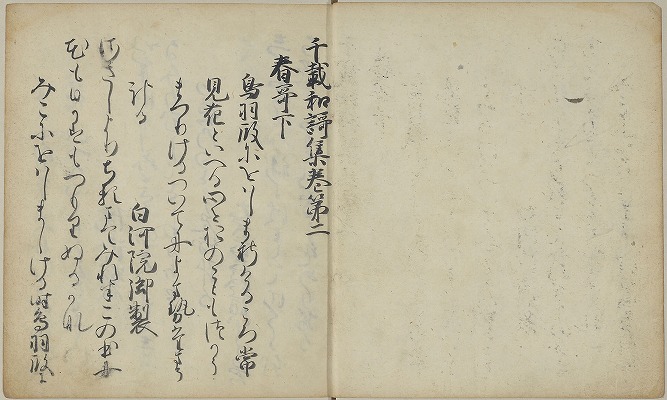 千載和謌集巻第二
春哥下
鳥羽殿にをはしましけるころ常
見花といへる心をおのこともつかう
まつりけるついてによませ給う
ける
白河院御製
さきしよりちるまてみれはこの本に
花も日かすもつもりぬるかな
みこにをはしましける時鳥羽殿に